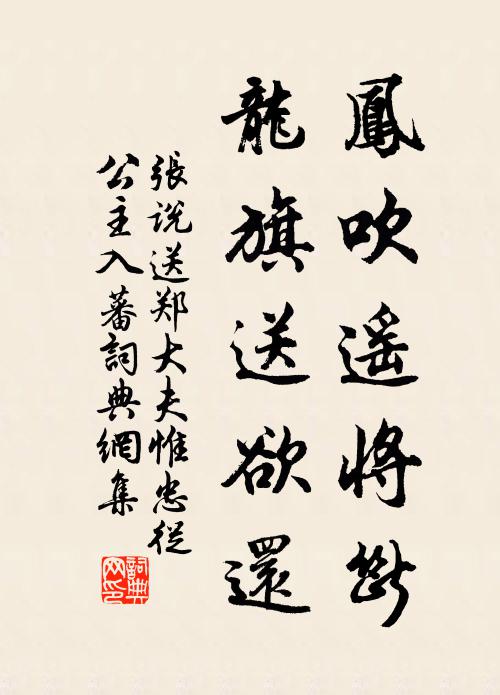 鳳吹遥將斷
龍旗送欲還
張説送郑大夫惟忠從
公主入蕃詞典網集
詞典
网印